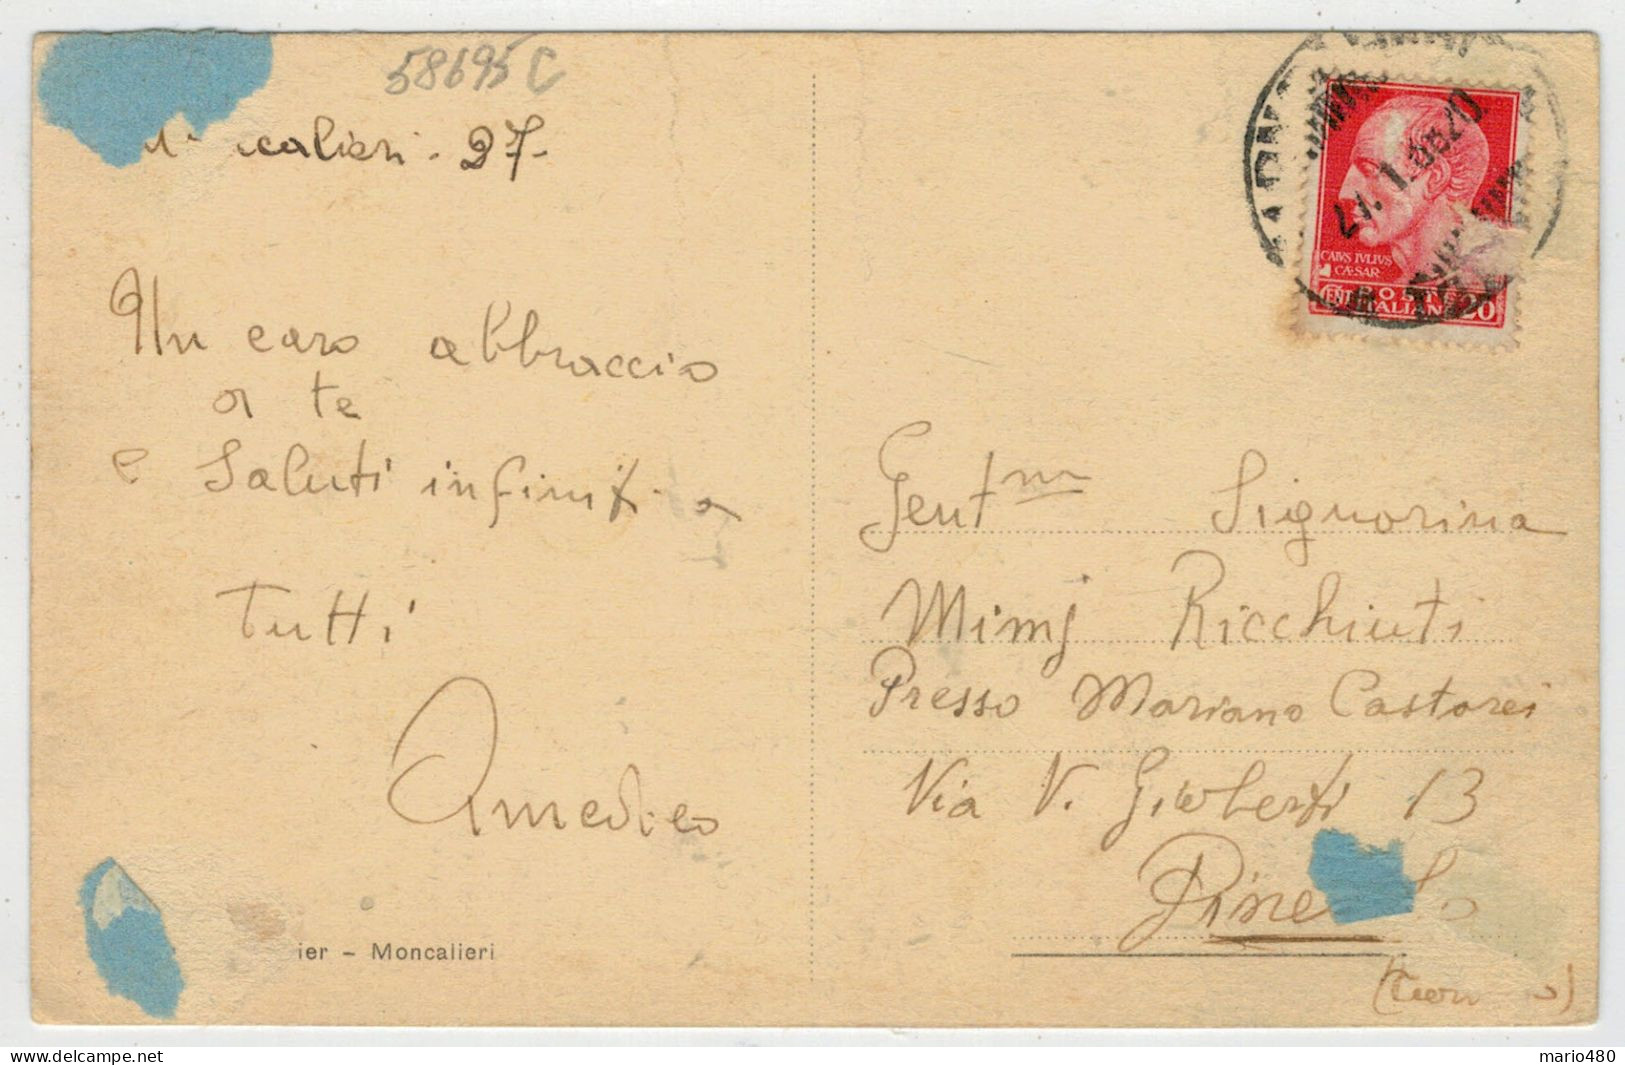 58695 C
calieri - 27-
Un caro abbraccio
a te
e Saluti infiniti a
Tutti
Amedeo
ier – Moncalieri
CAIVS IVLIVS
CÆSAR
POSTE
CENT ITALIANE 20
Gent.ma Signorina
Mimj Ricchiuti
Presso Mariano Castorei
Via V. Gioberti 13
Pine lo
mario480